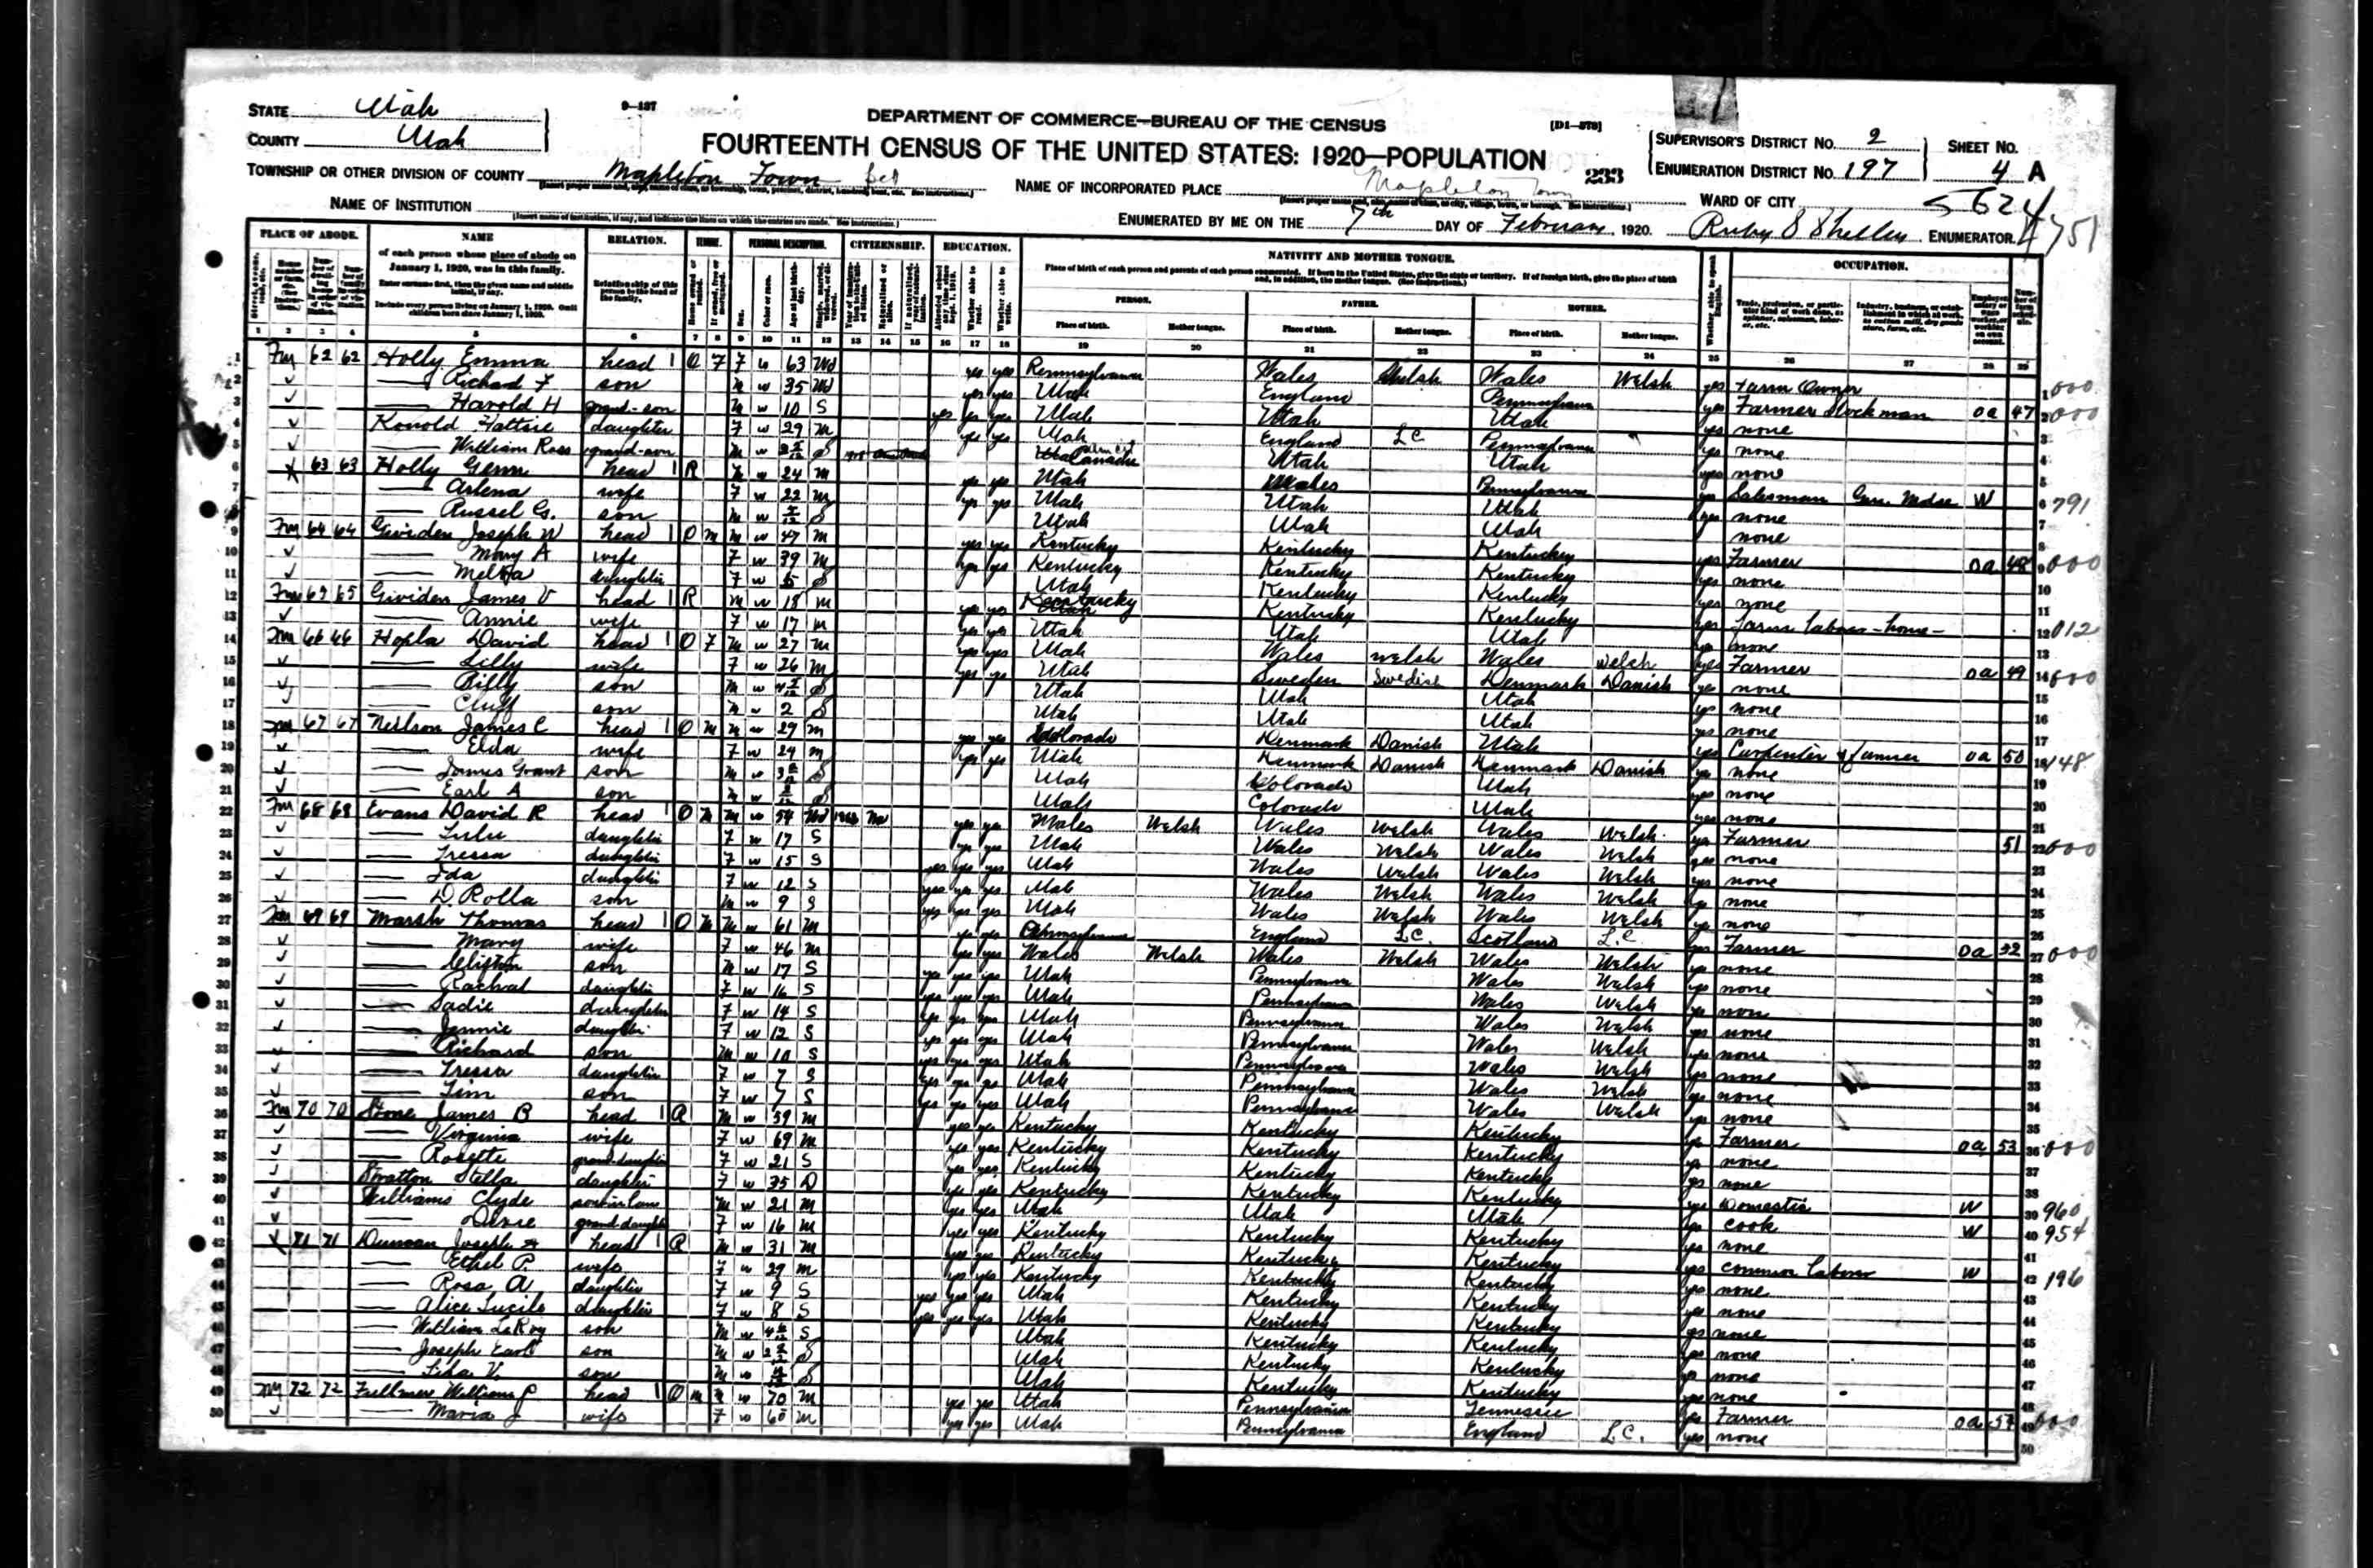 STATE Utah
COUNTY Utah
9-137
DEPARTMENT OF COMMERCE—BUREAU OF THE CENSUS
[D1-578]
FOURTEENTH CENSUS OF THE UNITED STATES: 1920—POPULATION
SUPERVISOR'S DISTRICT NO. 2
ENUMERATION DISTRICT NO. 197
SHEET NO.
4 A
TOWNSHIP OR OTHER DIVISION OF COUNTY Mapleton Town
NAME OF INCORPORATED PLACE Mapleton Town
233
WARD OF CITY
5624
4751
NAME OF INSTITUTION
ENUMERATED BY ME ON THE 7th DAY OF February, 1920. Ruby S Shelley ENUMERATOR.
PLACE OF ABODE. NAME RELATION. TENURE. PERSONAL DESCRIPTION. CITIZENSHIP. EDUCATION. NATIVITY AND MOTHER TONGUE. OCCUPATION.
of each person whose place of abode on January 1, 1920, was in this family.
Enter surname first, then the given name and middle initial, if any.
Include every person living on January 1, 1920. Omit children born since January 1, 1920.
Relationship of this person to the head of the family.
PERSON. FATHER. MOTHER.
Place of birth. Mother tongue. Place of birth. Mother tongue. Place of birth. Mother tongue.
1 2 3 4 5 6 7 8 9 10 11 12 13 14 15 16 17 18 19 20 21 22 23 24 25 26 27 28 29
1 Fm 62 62 Holly Emma head 1 O F F w 63 Wd yes yes Pennsylvania Wales Welsh Wales Welsh yes Farm Owner 1 000
2 — Richard F son M w 35 Wd yes yes Utah England Pennsylvania yes Farmer Stockman oa 47 2 000
3 — Harold H grand-son M w 10 S yes yes yes Utah Utah Utah yes none 3
4 Konold Hattie daughter F w 29 M yes yes Utah England L.C. Pennsylvania yes none 4
5 — William Ross grand-son M w S Canada Utah Utah yes none 5
6 63 63 Holly Glenn head 1 R M w 24 M yes yes Utah Wales Pennsylvania yes Salesman Gen. Mdse W 6 791
7 — Arlena wife F w 22 M yes yes Utah Utah Utah yes none 7
8 — Russel G. son M w S Utah Utah Utah none 8
9 Fm 64 64 Gividen Joseph W head 1 O M M w 47 M yes yes Kentucky Kentucky Kentucky yes Farmer oa 48 9 000
10 — Mary A wife F w 39 M yes yes Kentucky Kentucky Kentucky yes none 10
11 — Melba daughter F w 5 S Utah Kentucky Kentucky yes none 11
12 Fm 65 65 Gividen James V head 1 R M w 18 M yes yes Kentucky Kentucky Kentucky yes Farm labor - home - 12 012
13 — Annie wife F w 17 M yes yes Utah Utah Utah yes none 13
14 Fm 66 66 Hopla David head 1 O F M w 27 M yes yes Utah Wales Welsh Wales Welsh yes Farmer oa 49 14 000
15 — Lilly wife F w 26 M yes yes Utah Sweden Swedish Denmark Danish yes none 15
16 — Billy son M w S Utah Utah Utah yes none 16
17 — Cluff son M w 2 S Utah Utah Utah yes none 17
18 Fm 67 67 Neilson James C head 1 O M M w 29 M yes yes Colorado Denmark Danish Utah yes Carpenter & farmer oa 50 18 148
19 — Elda wife F w 24 M yes yes Utah Denmark Danish Denmark Danish yes none 19
20 — James Grant son M w S Utah Colorado Utah yes none 20
21 — Earl A son M w S Utah Colorado Utah yes none 21
22 Fm 68 68 Evans David R head 1 O M M w 54 Wd Na yes yes Wales Welsh Wales Welsh Wales Welsh yes Farmer 51 22 000
23 — Lulu daughter F w 17 S yes yes Utah Wales Welsh Wales Welsh yes none 23
24 — Tressa daughter F w 15 S yes yes yes Utah Wales Welsh Wales Welsh yes none 24
25 — Ida daughter F w 12 S yes yes yes Utah Wales Welsh Wales Welsh yes none 25
26 — D. Rolla son M w 9 S yes yes yes Utah Wales Welsh Wales Welsh yes none 26
27 Fm 69 69 Marsh Thomas head 1 O M M w 61 M yes yes Pennsylvania England L.C. Scotland L.C. yes Farmer oa 52 27 000
28 — Mary wife F w 46 M yes yes Wales Welsh Wales Welsh Wales Welsh yes none 28
29 — Clifton son M w 17 S yes yes yes Utah Pennsylvania Wales Welsh yes none 29
30 — Rachel daughter F w 16 S yes yes yes Utah Pennsylvania Wales Welsh yes none 30
31 — Sadie daughter F w 14 S yes yes yes Utah Pennsylvania Wales Welsh yes none 31
32 — Jennie daughter F w 12 S yes yes yes Utah Pennsylvania Wales Welsh yes none 32
33 — Richard son M w 10 S yes yes yes Utah Pennsylvania Wales Welsh yes none 33
34 — Tressa daughter F w 7 S yes yes yes Utah Pennsylvania Wales Welsh yes none 34
35 — Tim son F w 7 S yes yes yes Utah Pennsylvania Wales Welsh yes none 35
36 Fm 70 70 Stone James B head 1 R M w 59 M yes yes Kentucky Kentucky Kentucky yes Farmer oa 53 36 000
37 — Virginia wife F w 69 M yes yes Kentucky Kentucky Kentucky yes none 37
38 — Rosette grand-daughter F w 21 S yes yes Kentucky Kentucky Kentucky yes none 38
39 Stratton Stella daughter F w 35 D yes yes Kentucky Kentucky Kentucky yes Domestic W 39 960
40 Williams Clyde son in law M w 21 M yes yes Utah Utah Utah yes cook W 40 954
41 — grand-daughter F w 16 M yes yes Kentucky Kentucky Kentucky yes none 41
42 71 71 Duncan Joseph A head 1 R M w 31 M yes yes Kentucky Kentucky Kentucky yes common labor W 42 196
43 — Ethel P. wife F w 29 M yes yes Kentucky Kentucky Kentucky yes none 43
44 — Rosa A daughter F w 9 S yes yes yes Utah Kentucky Kentucky yes none 44
45 — Alice Lucile daughter F w 8 S yes yes yes Utah Kentucky Kentucky yes none 45
46 — William LeRoy son M w S Utah Kentucky Kentucky yes none 46
47 — Joseph Earl son M w S Utah Kentucky Kentucky yes none 47
48 — V. son M w S Utah Kentucky Kentucky yes none 48
49 Fm 72 72 Fullmer William P head 1 O M M w 70 M yes yes Utah Pennsylvania Tennessee yes Farmer oa 54 49 000
50 — Maria J wife F w 60 M yes yes Utah Pennsylvania England L.C. yes none 50